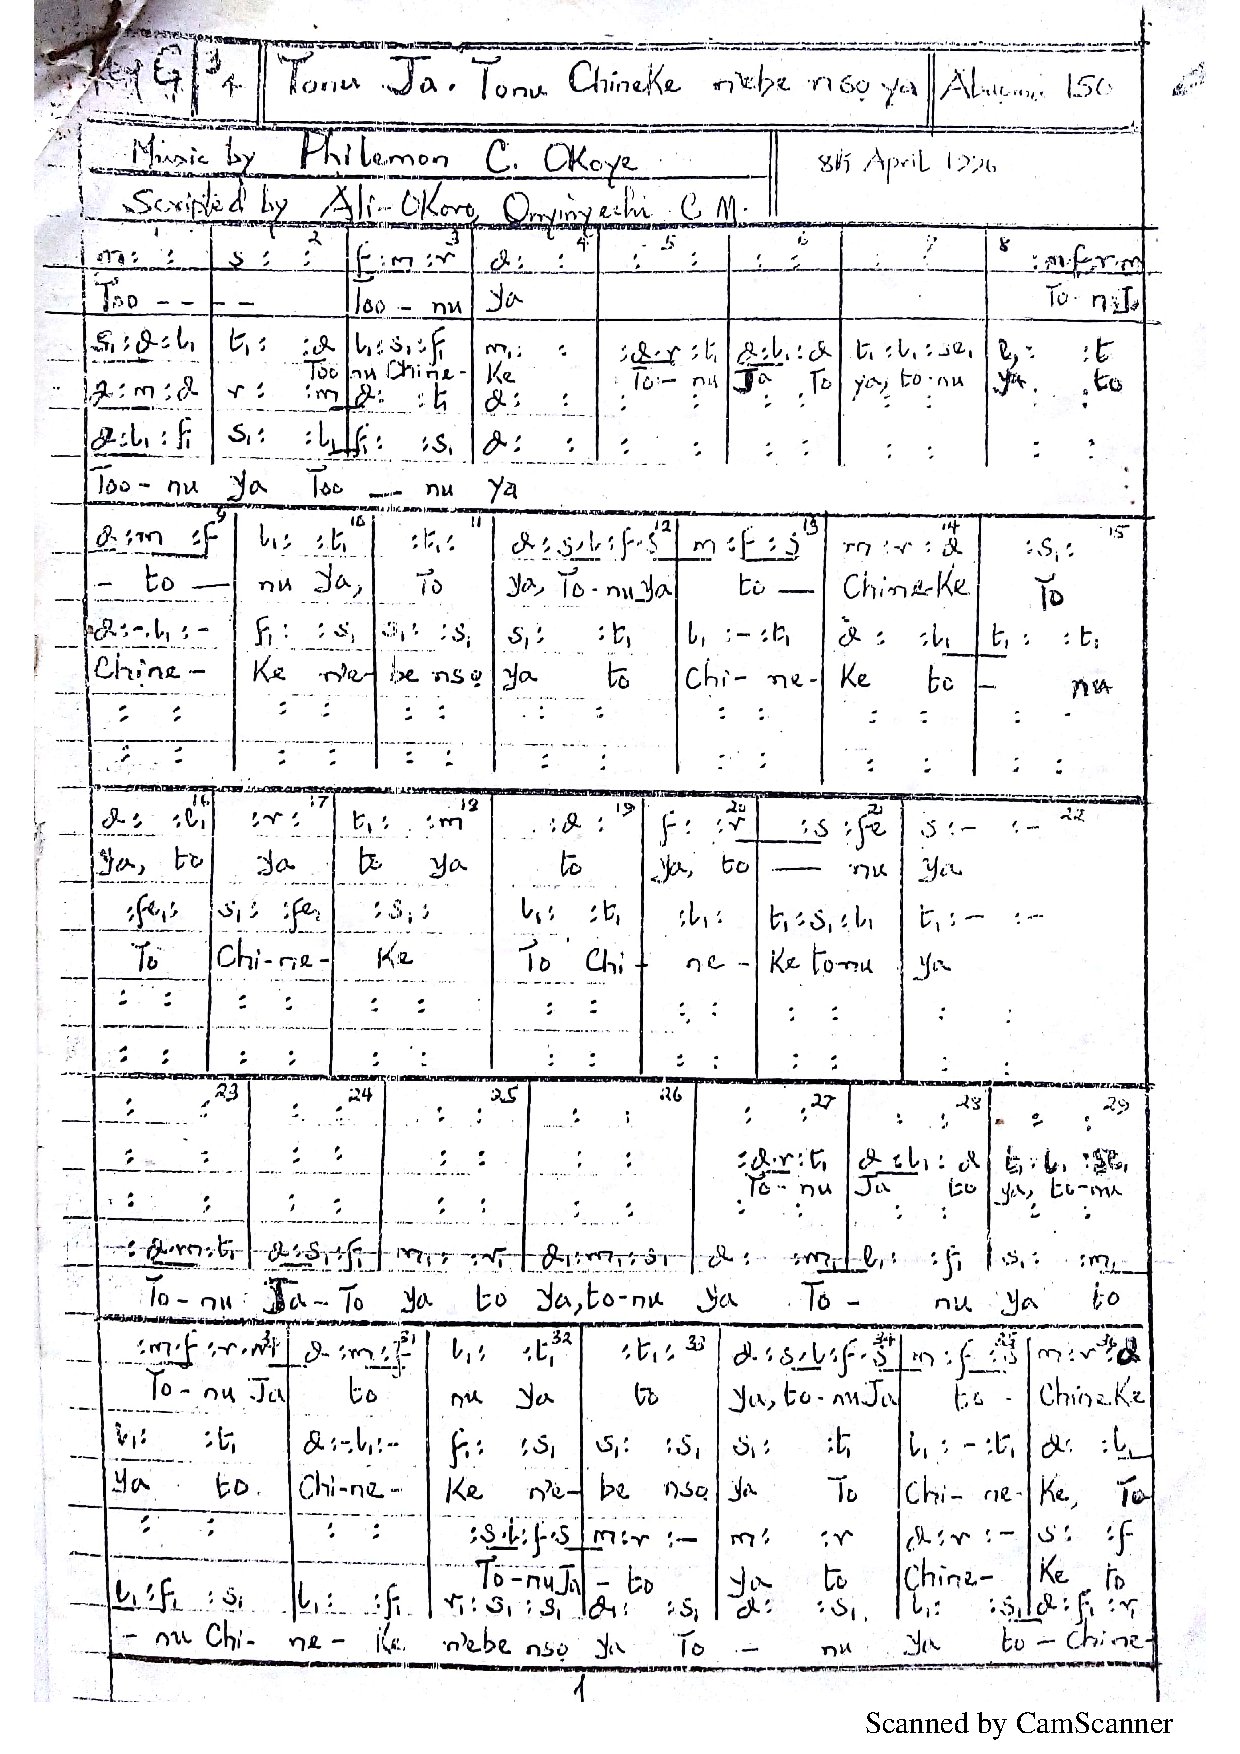 Key G 3/4 Tonu Ja. Tonu Chineke n'ebe nsọ ya Abụọma 150
Music by Philemon C. Okoye 8th April 1996
Scripted by Ali-Okoro, Onyinyechi C. M.
1 2 3 4 5 6 7 8
m: : s: : f:m:r d: : : : : : : : :m.f.r.m
Too - - - - Too - nu ya To-nuJa
s₁:d:l₁ t₁: :d l₁:s₁:f₁ m₁: : :d.r:t₁ d:l₁:d t₁:l₁:se₁ l₁: :t
Too nu Chine- Ke To - nu Ja To ya, to-nu ya to
d:m:d r: :m d: :t₁ d: : : : : : : : : :
d:l₁:f₁ s₁: :l₁ f₁: :s₁ d: : : : : : : : : :
Too - nu ya Too — nu ya
9 10 11 12 13 14 15
d:m:f l₁: :t₁ :t₁: d:s.l:f.s m:f:s m:r:d :s₁:
- to — nu Ya, To ya, To-nu Ya to — Chineke To
d:-.l₁:- f₁: :s₁ s₁: :s₁ s₁: :t₁ l₁:-:t₁ d: :l₁ t₁: :t₁
Chine - Ke n'e- be nsọ ya to Chi- ne- Ke to - nu
: : : : : : : : : : : : : :
: : : : : : : : : : : : : :
16 17 18 19 20 21 22
d: :l₁ :r: t₁: :m :d: f: :r :s:fe s:- :-
ya, to ya to ya to ya, to — nu ya
:fe₁: s₁: :fe₁ :s₁: l₁: :t₁ :l₁: t₁:s₁:l₁ t₁:- :-
To Chi-ne- Ke To Chi - ne - Ke to-nu ya
: : : : : : : : : : : : : :
: : : : : : : : : : : : : :
23 24 25 26 27 28 29
: : : : : : : : : : : : : :
: : : : : : : : :d.r:t₁ d:l₁:d t₁:l₁:se₁
To - nu Ja to ya, to-nu
: : : : : : : : : : : : : :
:d.m:t₁ d:s₁:f₁ m₁: :r₁ d₁:m₁:s₁ d: :m₁ l₁: :f₁ s₁: :m₁
To - nu Ja - To ya to ya, to-nu ya To - nu ya to
30 31 32 33 34 35 36
:m.f:r.m d:m:f l₁: :t₁ :t₁: d:s.l:f.s m:f:s m:r:d
To - nu Ja to nu ya to ya, to-nuJa to - Chineke
l₁: :t₁ d:-.l₁:- f₁: :s₁ s₁: :s₁ s₁: :t₁ l₁:-:t₁ d: :l₁
Ya to Chi-ne- Ke n'e- be nsọ ya To Chi- ne- Ke, To
: : : : :s.l:f.s m:r:- m: :r d:r:- s: :f
To-nuJa - to ya to Chine- Ke to
l₁:f₁:s₁ l₁: :f₁ r₁:s₁:s₁ d₁: :s₁ d: :s₁ l₁: :s₁ d:f₁:r₁
- nu Chi- ne - Ke n'ebe nsọ ya To - nu ya to - Chine-
1
Scanned by CamScanner